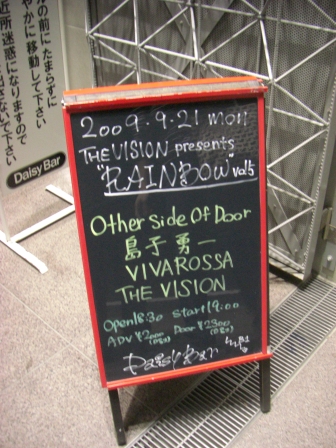 の前にたまらずに
やかに移動して下さい
近所迷惑になりますので
Daisy Bar
2009.9.21 mon
THE VISION presents
"RAINBOW" vol5
Other Side Of Door
島子勇一
VIVAROSSA
THE VISION
Open18:30 Start19:00
ADV ¥2000 Door ¥2300
Daisy Bar